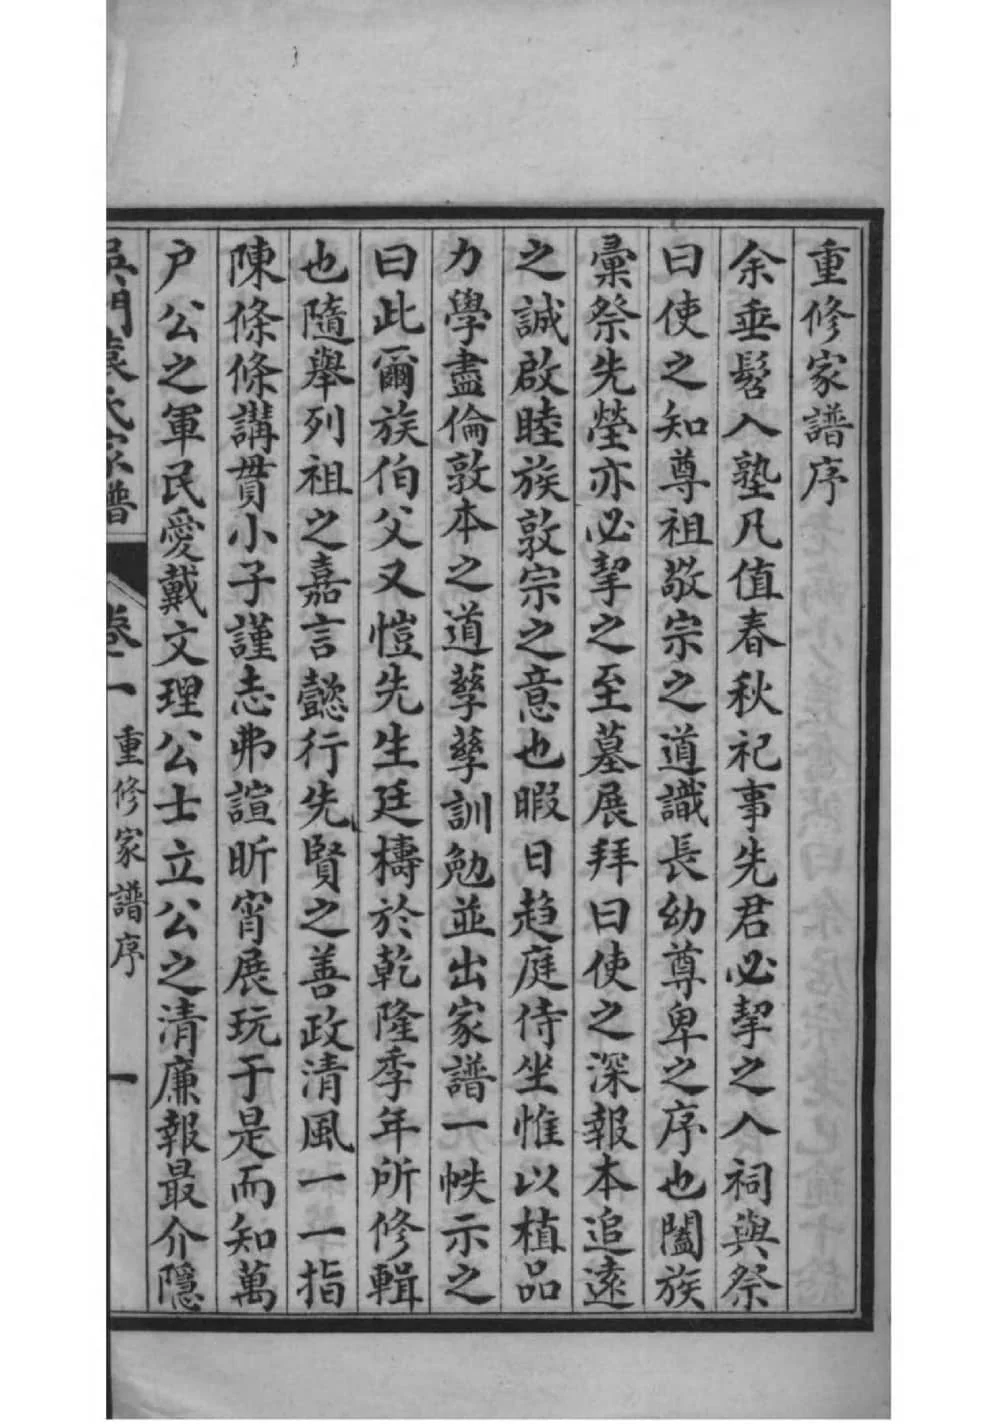 重修家譜序
余垂髫入塾凡值春秋祀事先君必挈之入祠與祭
曰使之知尊祖敬宗之道識長幼尊卑之序也闔族
彚祭先塋亦必挈之至墓展拜曰使之深報本追遠
之誠啟睦族敦宗之意也暇日趋庭侍坐惟以植品
力學盡倫敦本之道孳孳訓勉並出家譜一帙示之
曰此爾族伯父又愷先生廷檮於乾隆季年所修輯
也隨舉列祖之嘉言懿行先賢之善政清風一一指
陳條條講貫小子謹志弗諠昕宵展玩于是而知萬
户公之軍民愛戴文理公士立公之清廉報最介隱
吳門袁氏家譜 卷一 重修家譜序 一